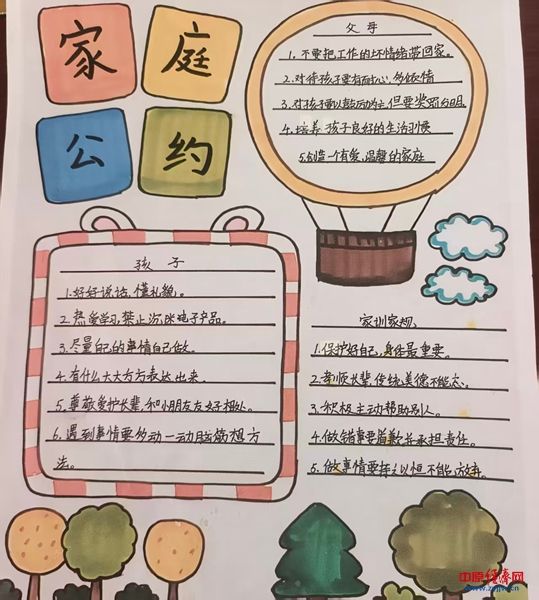 家庭
公约
父母
1.不要把工作的坏情绪带回家。
2.对待孩子要有耐心,多倾情
3.对孩子要以鼓励为主,但要奖罚分明。
4.培养孩子良好的生活习惯
5.创造一个有爱、温馨的家庭
孩子
1.好好说话,懂礼貌。
2.热爱学习,禁止沉迷电子产品。
3.尽量自己的事情自己做。
4.有什么大大方方表达出来。
5.尊敬爱护长辈,和小朋友友好相处。
6.遇到事情要多动一动脑筋想方
法。
家训家规
1.保护好自己,身体最重要。
2.孝顺长辈,传统美德不能忘。
3.积极主动帮助别人。
4.做错事要道歉并承担责任。
5.做事情要持之以恒不能放弃。
中原经济网